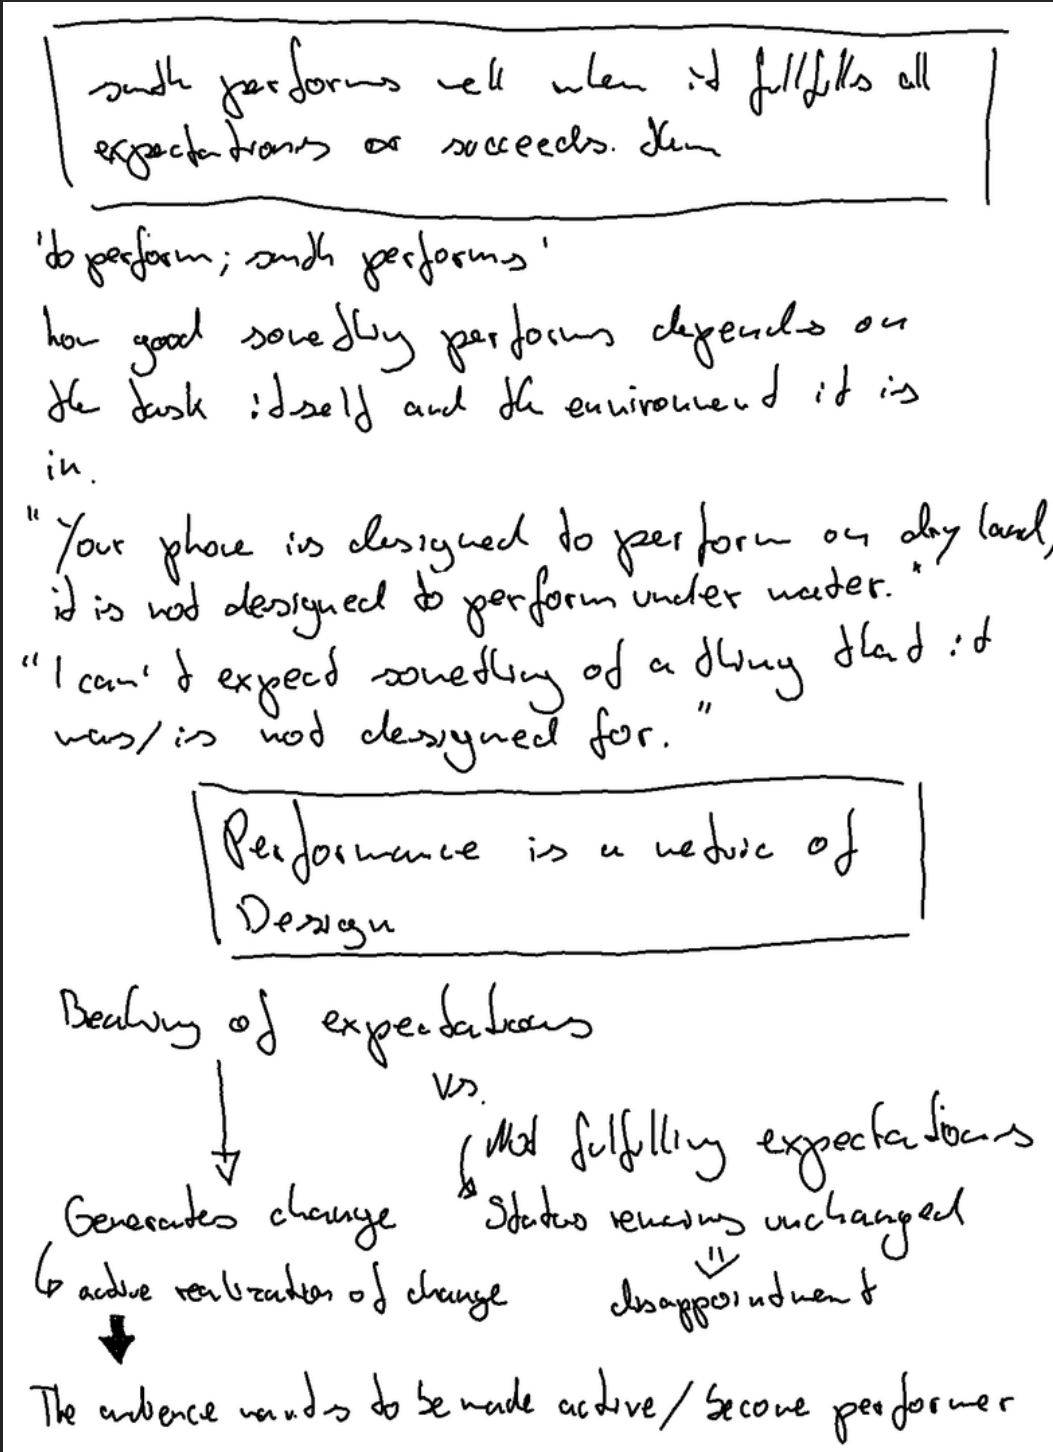 smth performs well when it fullfills all
expectations or succeeds. them
'to perform; smth performs'
how good something performs depends on
the task itself and the environment it is
in.
"Your phone is designed to perform on dry land,
it is not designed to perform under water."
"I can't expect something of a thing that it
was/is not designed for."
Performance is a metric of
Design
Beating of expectations
vs.
Not fulfilling expectations
Generates change
Status remains unchanged
active realization of change
disappointment
The audience wants to be made active/become performer